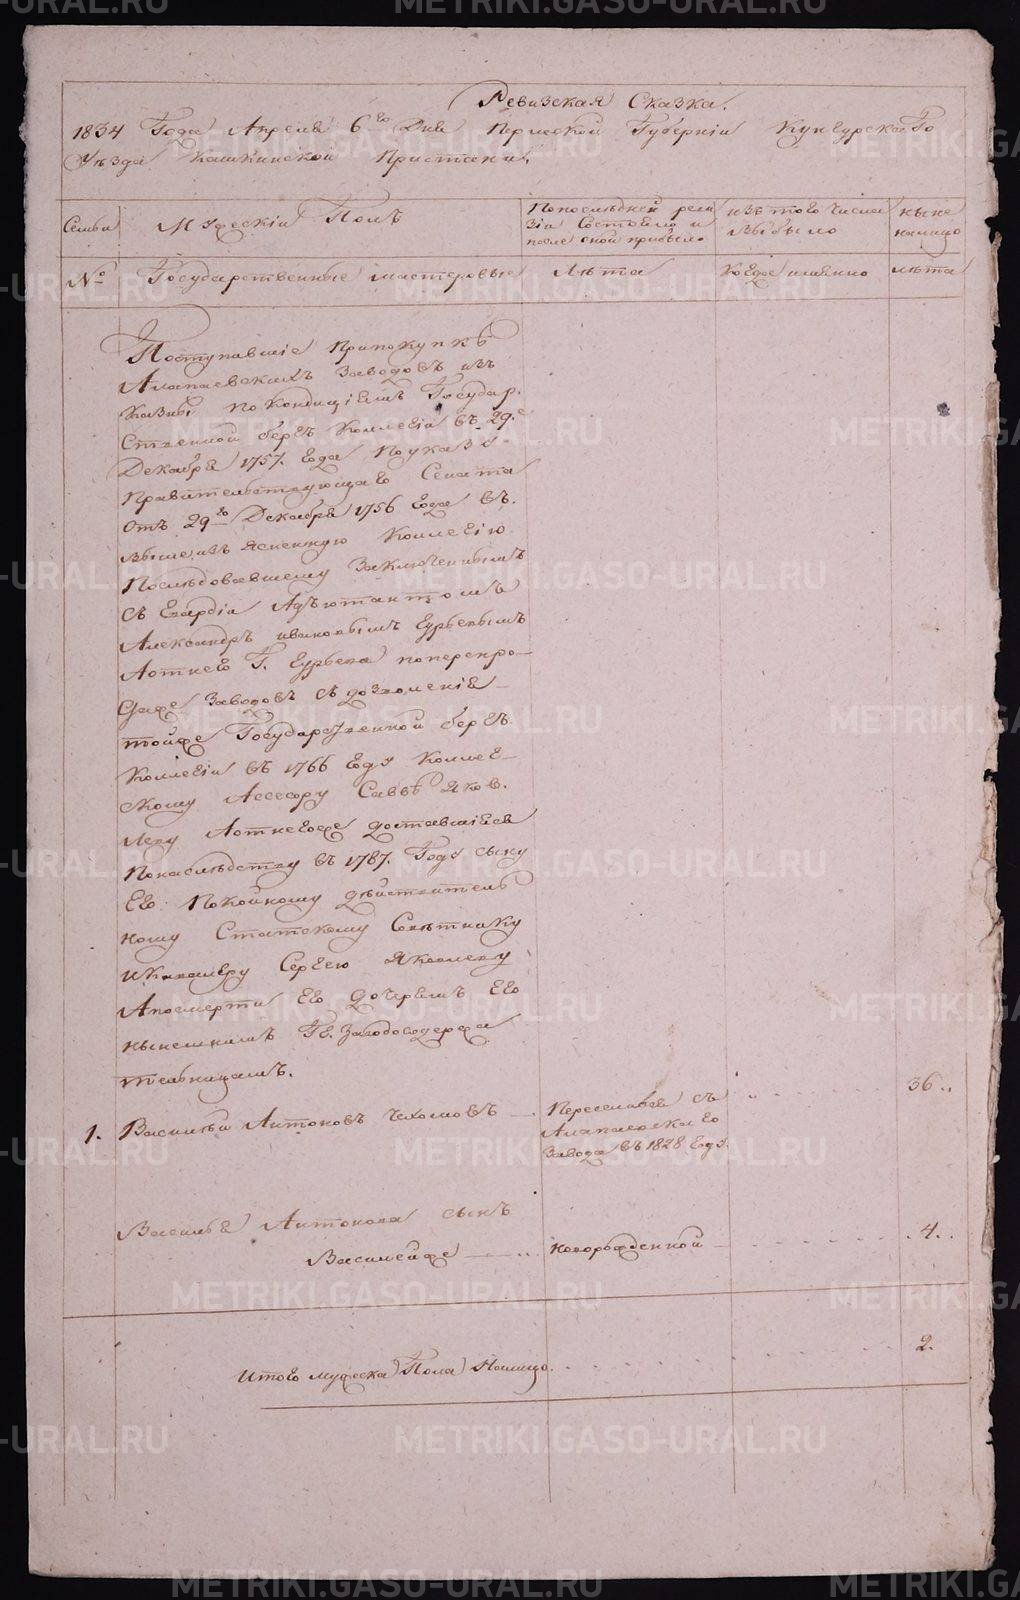 Ревизская Сказка.
1834 Года Апреля 6го Дня Пермской Губернiи Кунгурскаго
Уезда Кашкинской Пристани.
Семьи
Мужескiй Полъ
По последней реви
зiи Состояло и
после оной прибыло
изъ того числа
Выбыло
ныне
налицо
№
Государственные мастеровые
Лѣта
Когда имянно
лѣта
Поступившiе При покупкѣ
Алапаевскихъ Заводовъ изъ
Казны по Кондицiямъ Государ.
Ственной бергъ Коллегiи въ 29.е
Декабря 1757. Года По указу
Правительствующаго Сената
Отъ 29го Декабря 1756 Года въ.
выше изъясненную Коллегiю
Последовавшему Заключеннымъ
съ Гвардiи Адъютантомъ
Александръ Ивановымъ Гурьевымъ
А отнего Г. Гурьева по перепро-
Даже Заводовъ съ дозволенiя
тойже Государственной бергъ.
Коллегiи въ 1766 Году Коллеж-
скому Асесору Саввѣ Яков.
леву А отнегоже доставшiеся
По наследству въ 1787. Году сыну
Его Покойному действитель
ному Статскому Советнику
и Кавалеру Сергею Яковлеву
А по смерти Его Дочерямъ Его
нынешнимъ Гж. Заводосодержа
тельницамъ.
1. Василiй Антоновъ Чехомовъ
Переселился съ
Алапаевскаго
Завода въ 1828 Году
36
Василья Антонова сынъ
Василейже
новорожденной
4.
Итого мужеска Пола Налицо.
2.
METRIKI.GASO-URAL.RU